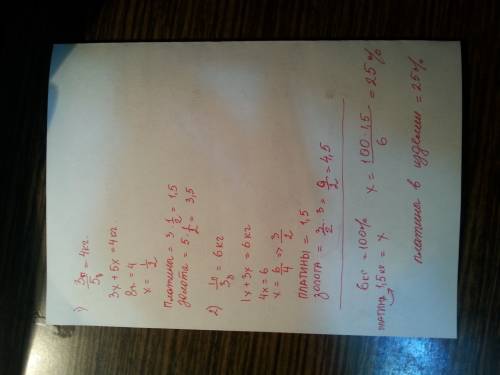 1) 3п/5з = 4кг.
3x + 5x = 4кг
8x = 4
x = 1/2
Платина = 3 · 1/2 = 1,5
золота = 5 · 1/2 = 3,5
2) 1п/3з = 6кг
1x + 3x = 6кг
4x = 6
x = 6/4 => 3/2
платины = 1,5
золота = 3/2 · 3 = 9/2 = 4,5
6кг = 100%
1,5кг = x
x = 100 · 1,5 / 6 = 25%
платина в изделии = 25%